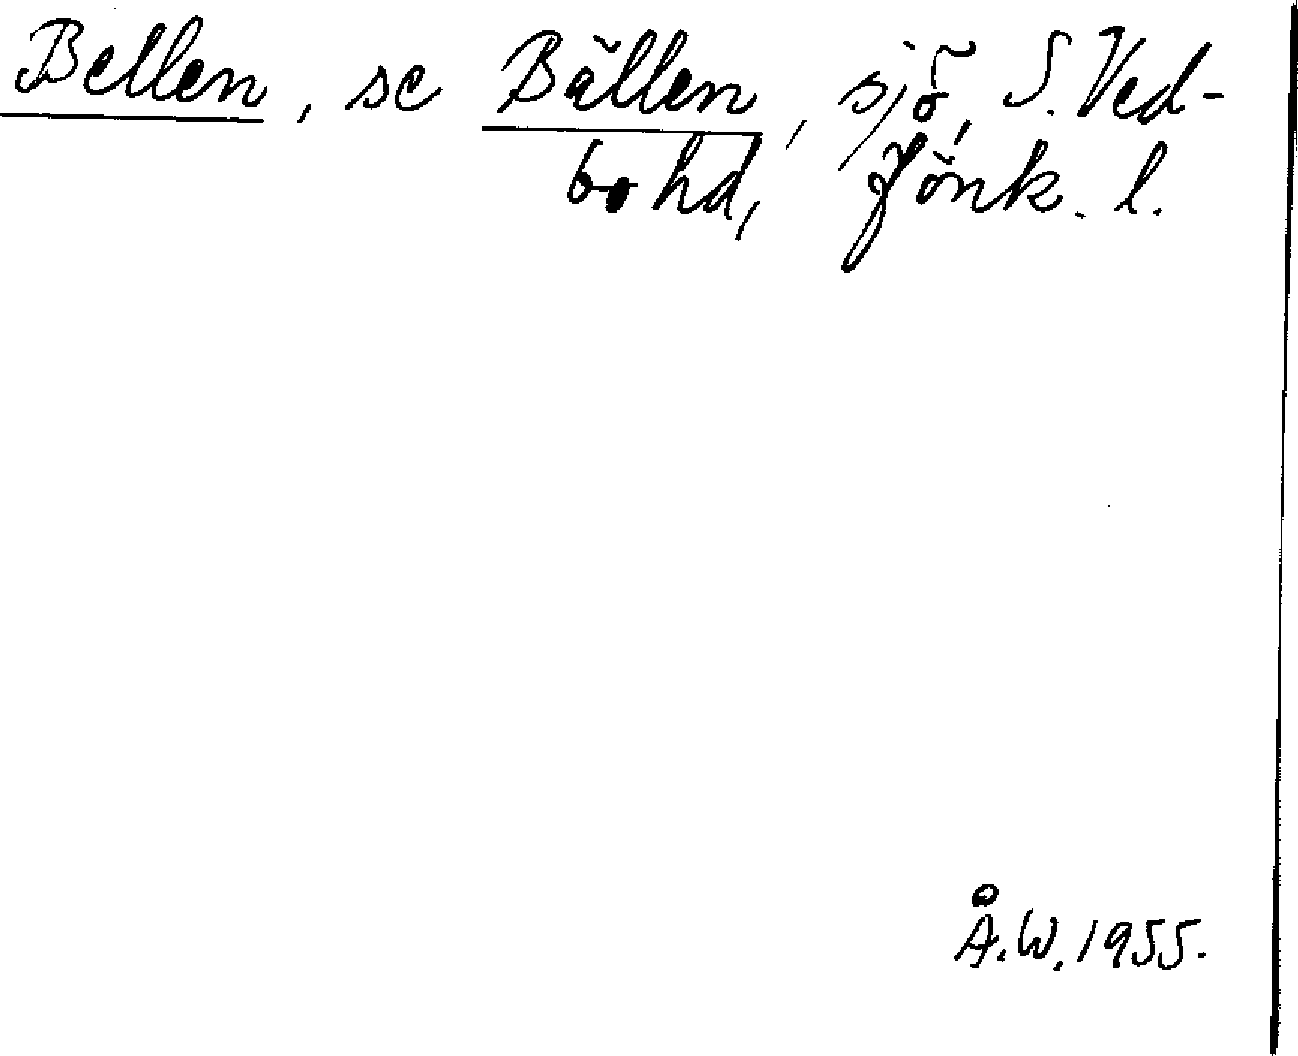 Bellen, se Bällen, sjö, S. Ved-
bo hd, Jönk. l.
Å.W. 1955.